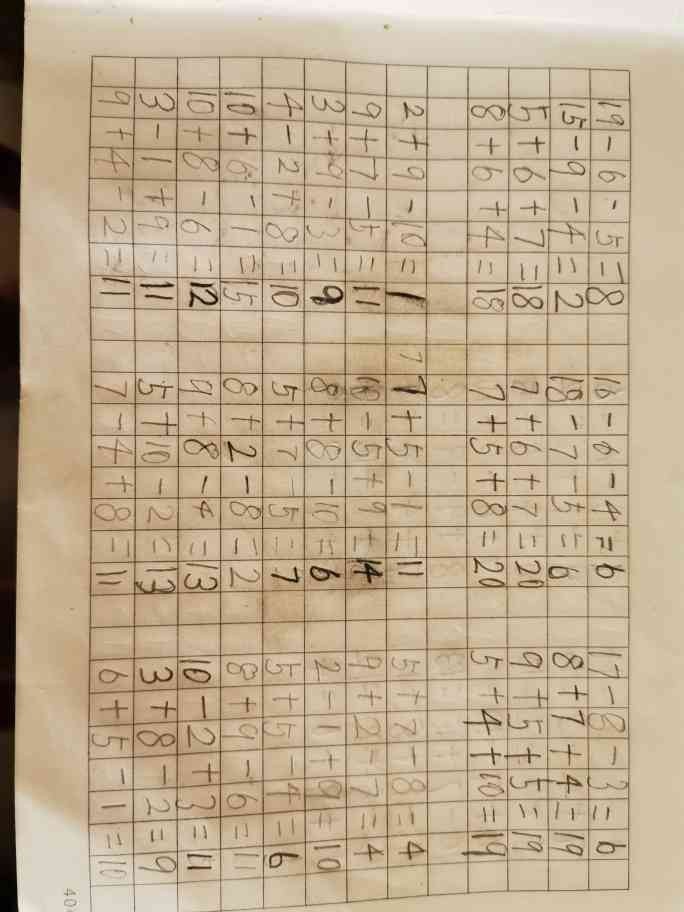 19-6-5=8 16-6-4=6 17-8-3=6
15-9-4=2 18-7-5=6 8+7+4=19
5+6+7=18 7+6+7=20 9+5+5=19
8+6+4=18 7+5+8=20 5+4+10=19
2+9-10=1 7+5-1=11 5+7-8=4
9+7-5=11 10-5+9=14 9+2-7=4
3+9-3=9 8+8-10=6 2-1+9=10
4-2+8=10 5+7-5=7 5+5-4=6
10+6-1=15 8+2-8=2 8+9-6=11
10+8-6=12 9+8-4=13 10-2+3=11
3-1+9=11 5+10-2=13 3+8-2=9
9+4-2=11 7-4+8=11 6+5-1=10